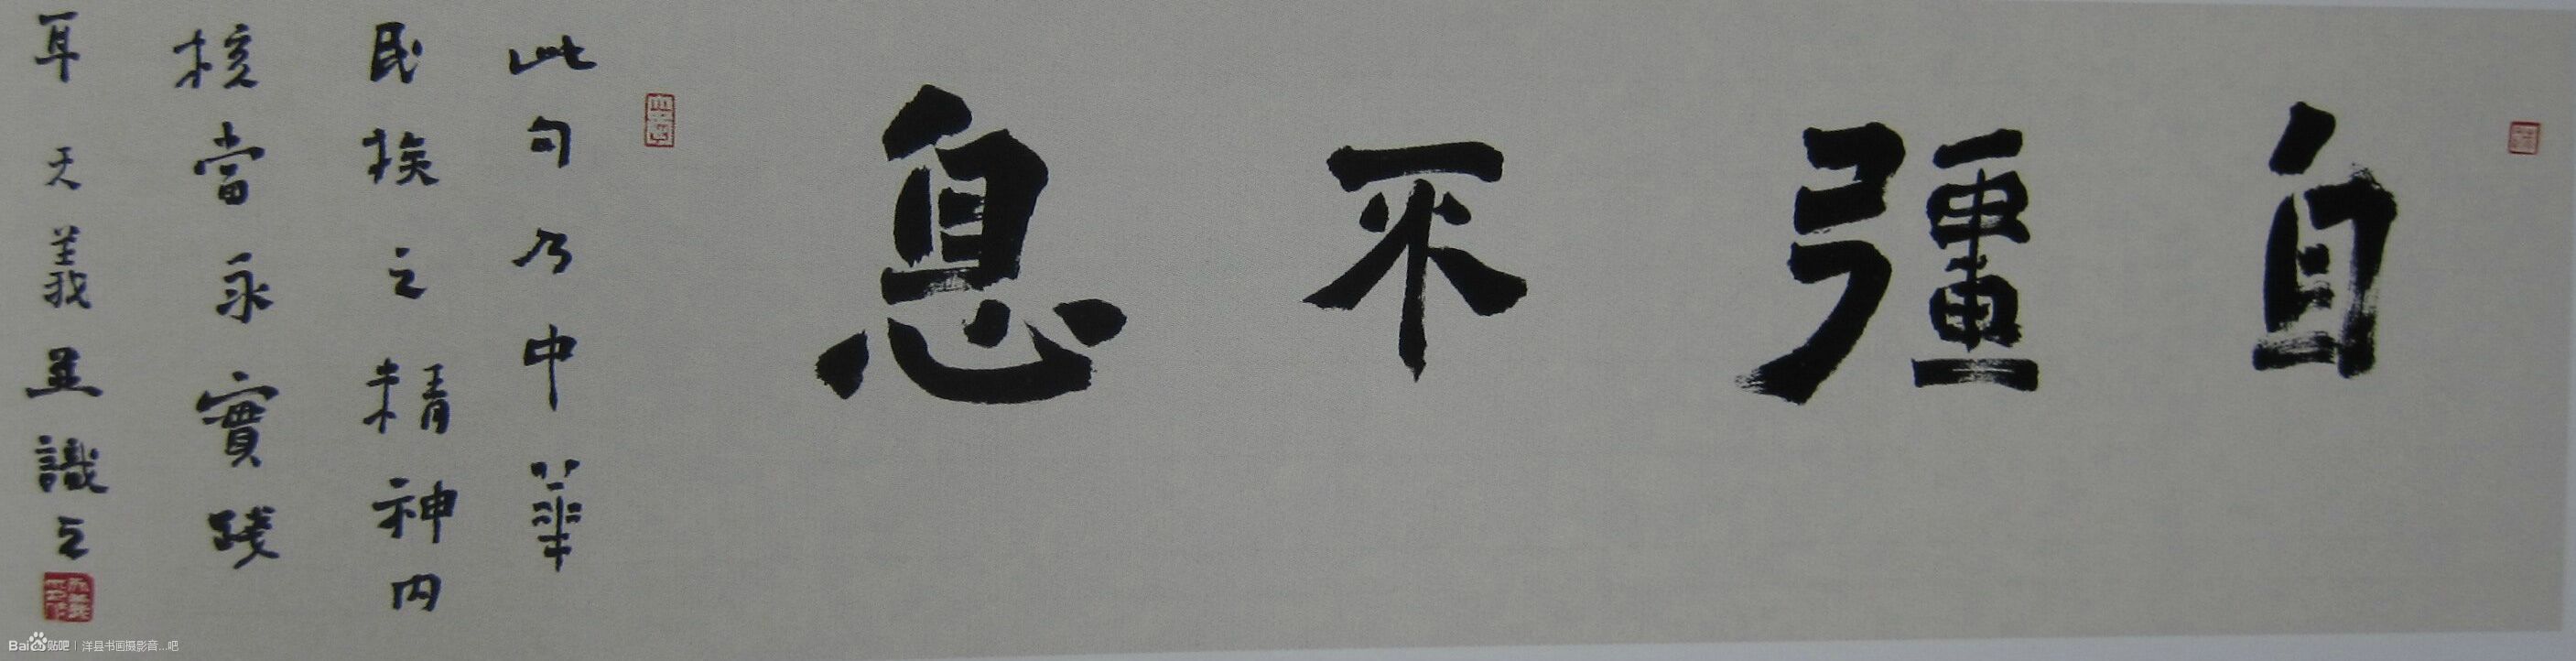 自彊不息
此句乃中華
民族之精神内
核當永實踐
耳天義並識之
Bai贴吧 | 洋县书画摄影音...吧